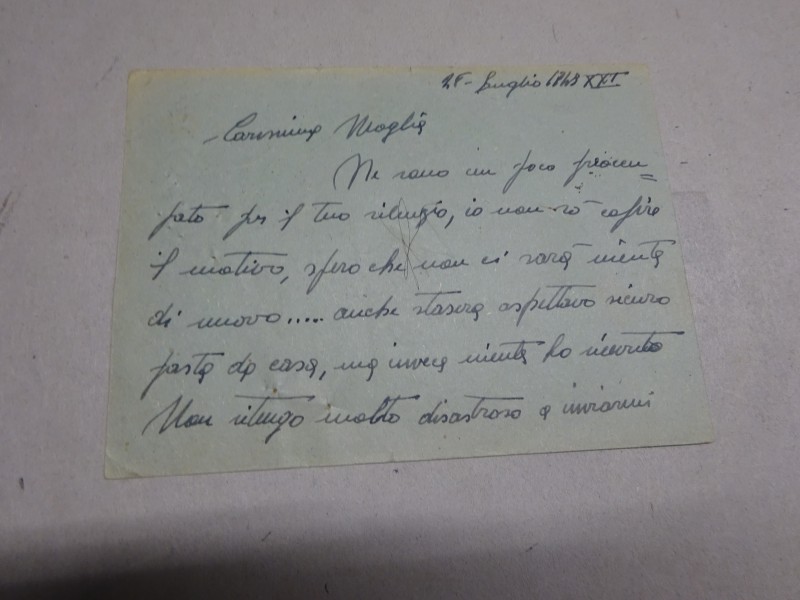 Luglio 1943 XXI
Carissima Moglie
Ne sono un poco preoccu=
pato per il tuo silenzio, io non so capire
il motivo, spero che non ci sarà niente
di nuovo..... anche stasera aspettavo sicuro
posta da casa, ma invece niente ho ricevuto
Non ritengo molto disastroso a inviarmi